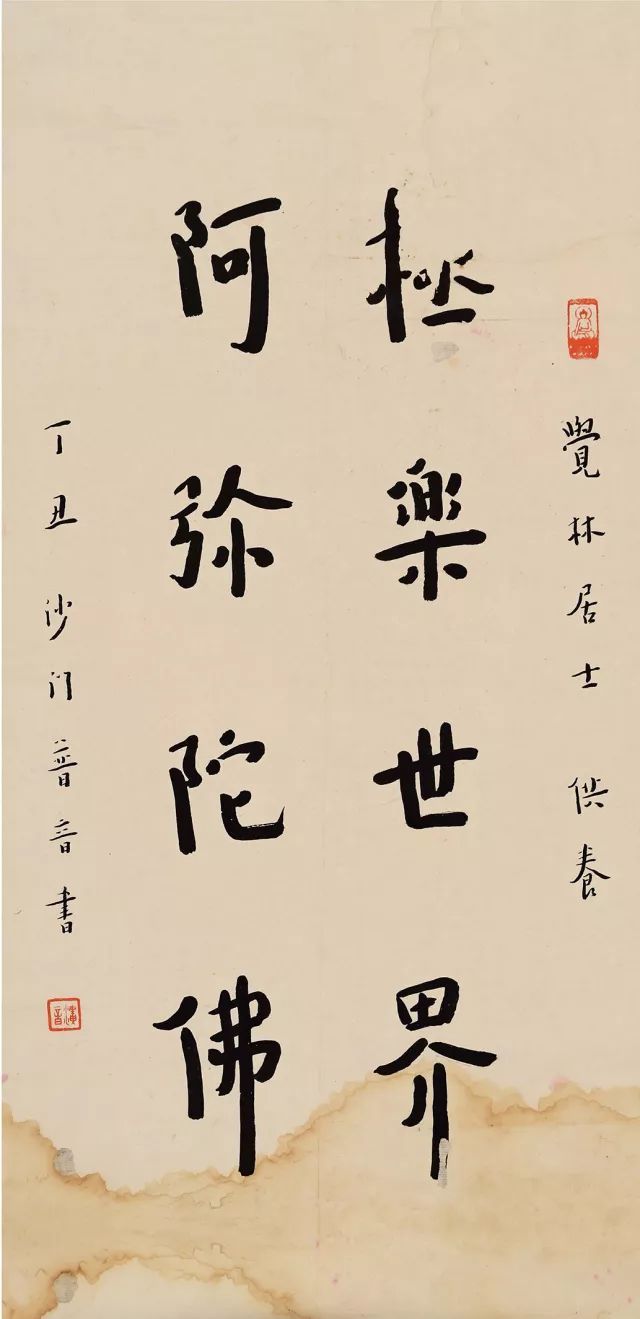 覺林居士供養
極樂世界
阿弥陀佛
丁丑沙门普音書